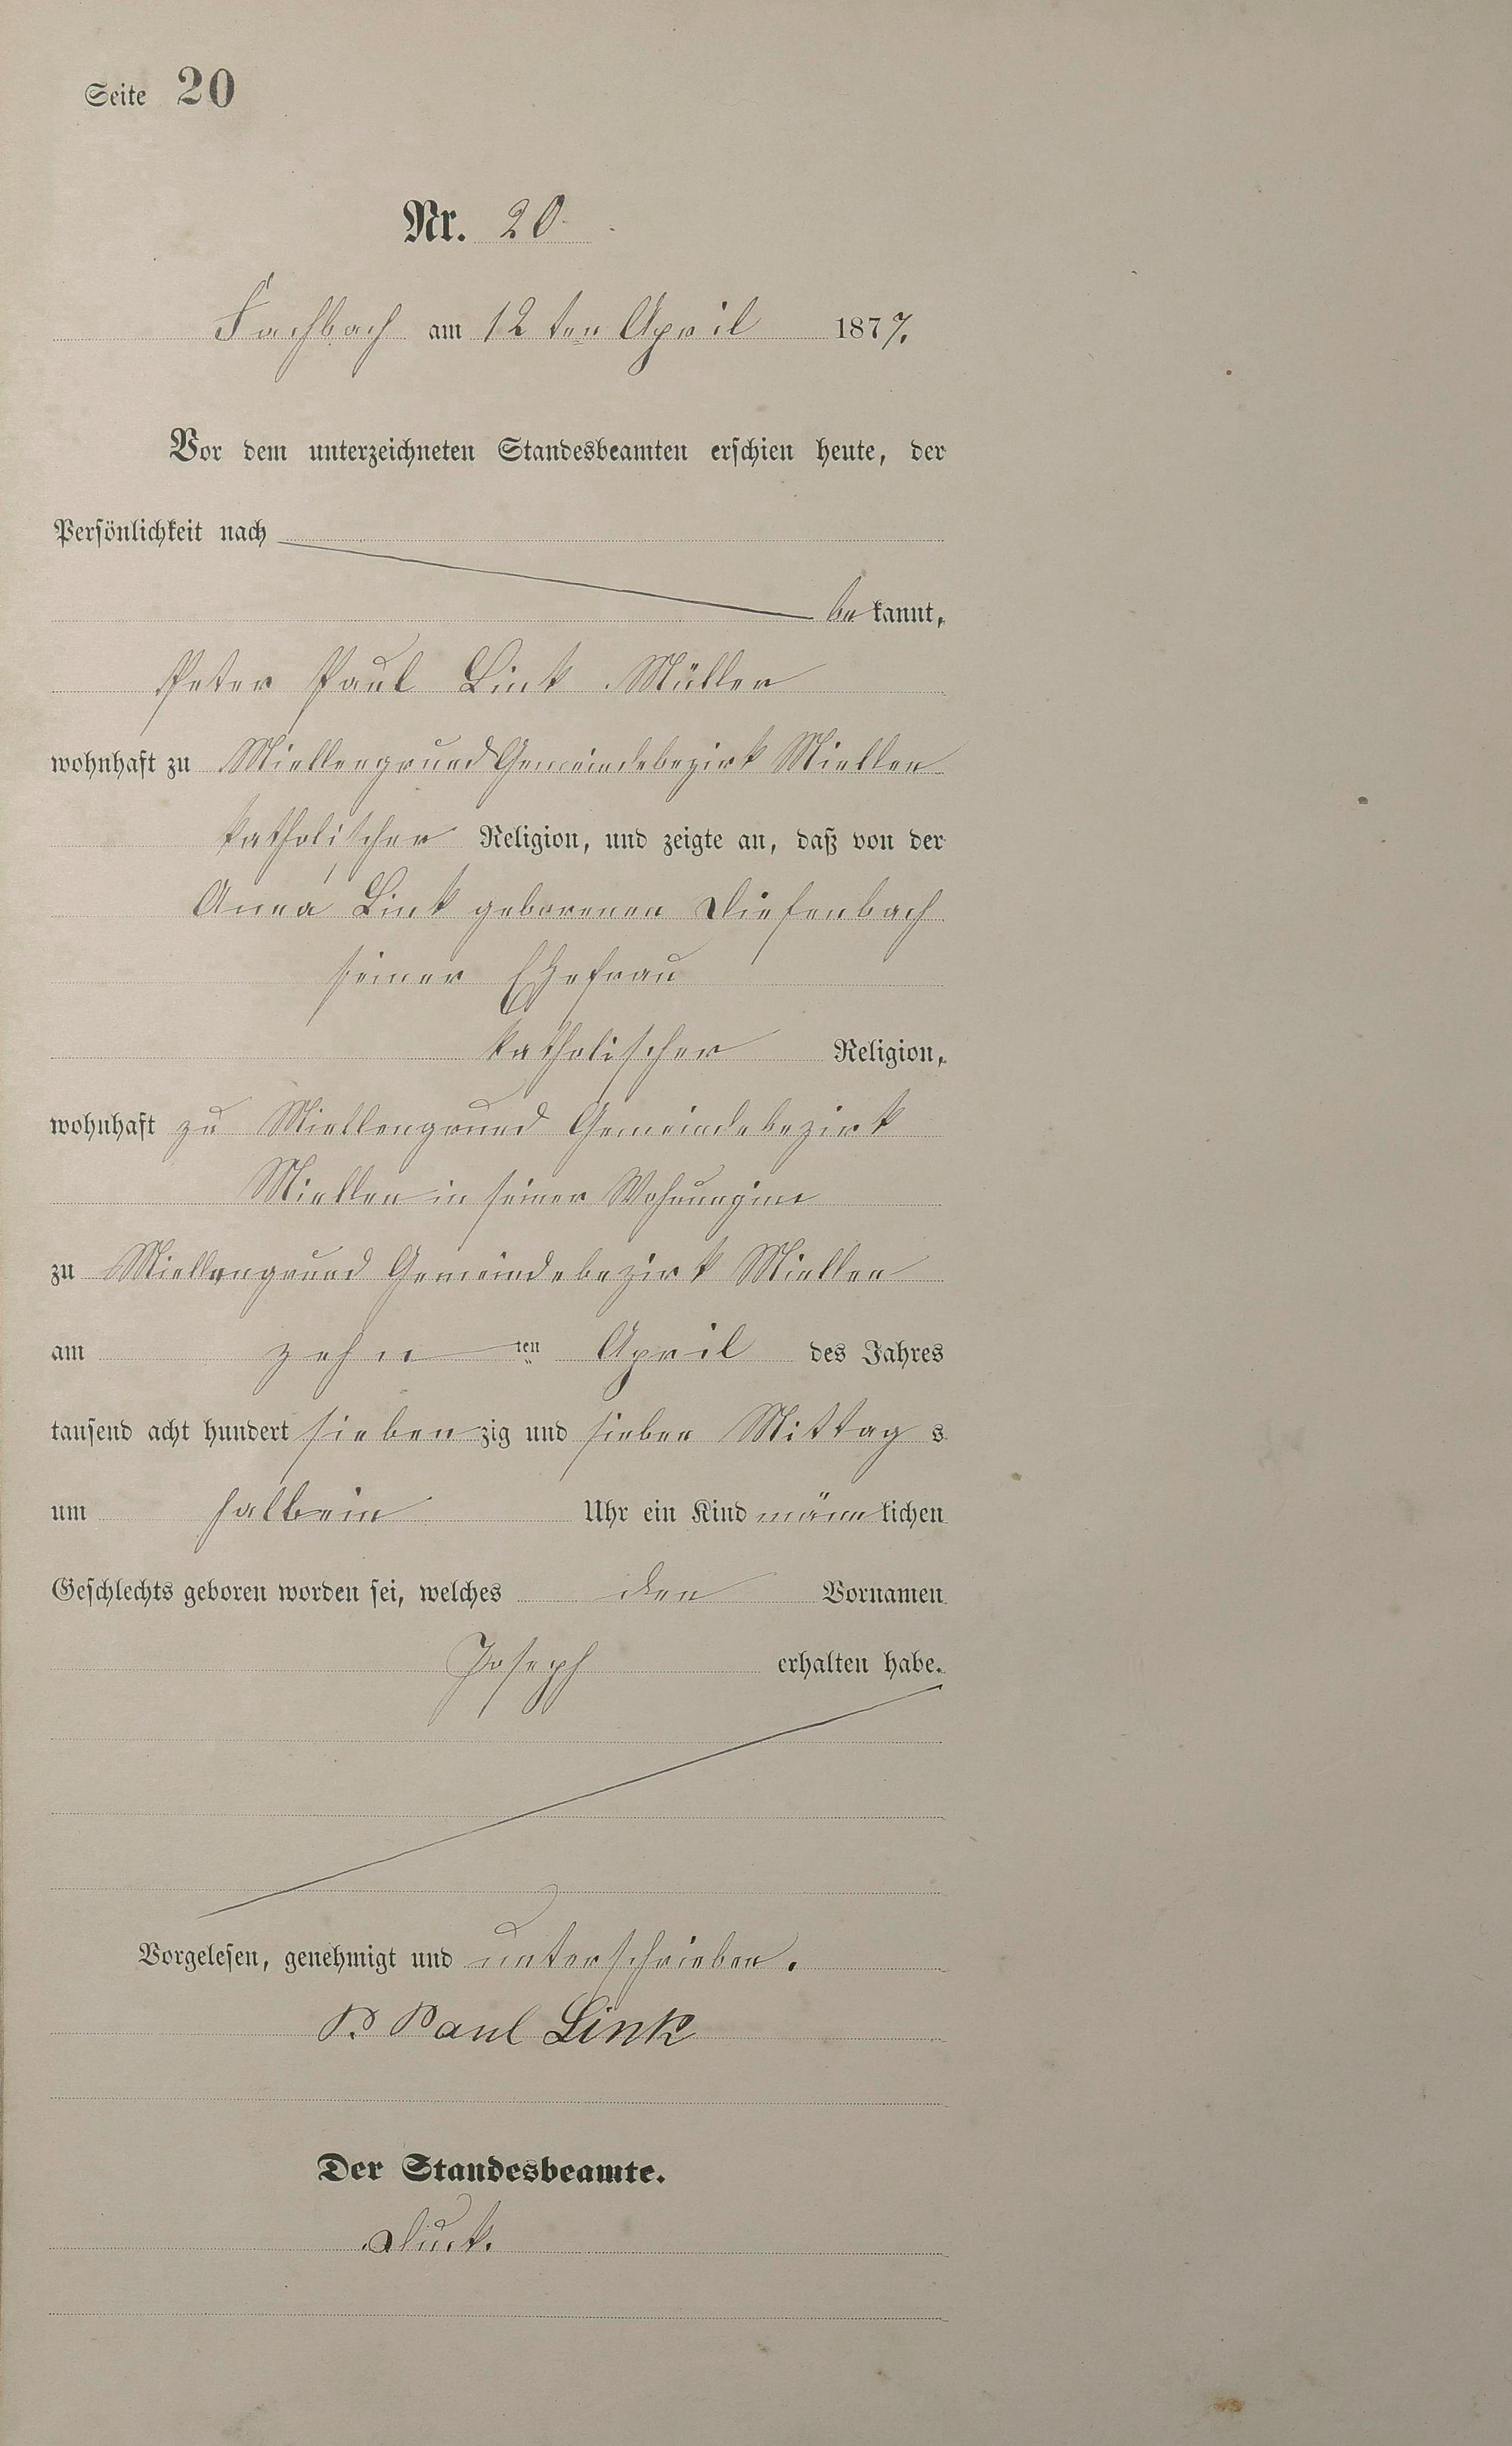 Seite 20
Nr. 20.
Fachbach am 12ten April 1877.
Vor dem unterzeichneten Standesbeamten erschien heute, der
Persönlichkeit nach
bekannt,
Peter Paul Link Müller
wohnhaft zu Miellengrund Gemeindebezirk Miellen
katholischer Religion, und zeigte an, daß von der
Anna Link geborenen Diefenbach
seiner Ehefrau
katholischer Religion,
wohnhaft zu Miellengrund Gemeindebezirk
Miellen in seiner
zu Miellengrund Gemeindebezirk Miellen
am zehnten April des Jahres
tausend acht hundert siebenzig und sieben Mittags
um halbein Uhr ein Kind männlichen
Geschlechts geboren worden sei, welches den Vornamen
Joseph erhalten habe.
Vorgelesen, genehmigt und unterschrieben.
P. Paul Link
Der Standesbeamte.